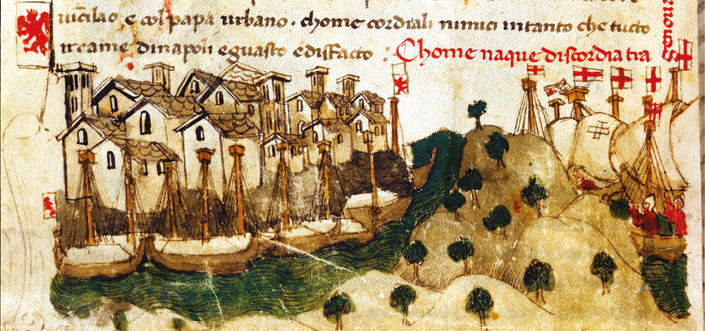 uicilao e col papa urbano · chome cordiali nimici intanto che tucto
ireame di napoli e guasto e disfacto :· Chome naque discordia tra
genoua